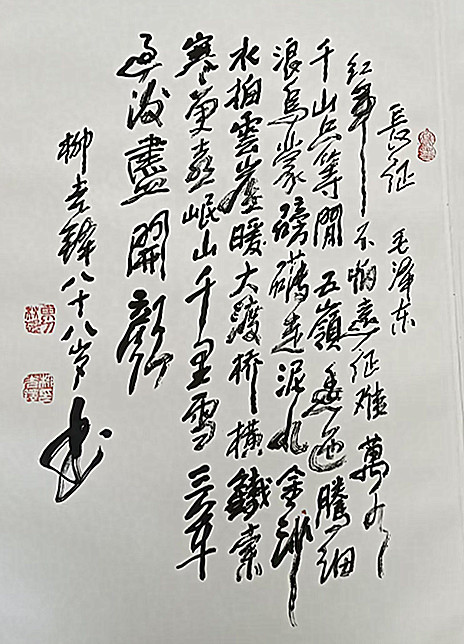 長征 毛泽东
红軍不怕遠征难 萬水
千山只等閒 五嶺逶迤騰细
浪 烏蒙磅礴走泥丸 金沙
水拍雲崖暖 大渡桥橫鐵索
寒 更喜岷山千里雪 三军
過後盡開顔
柳 八十八岁 书